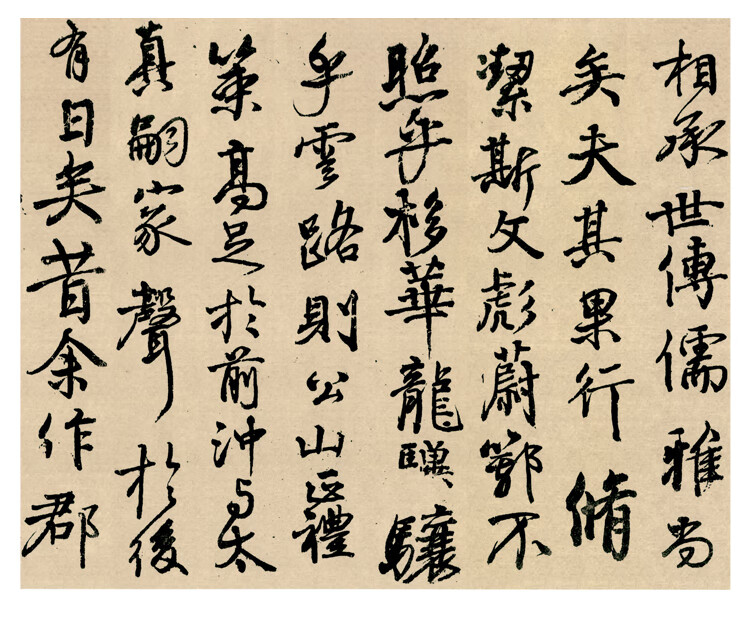 相承世傳儒雅尚
矣夫其果行脩
潔斯文彪蔚鄂不
照乎移華龍驥驤
乎雲路則公山正禮
策高足於前沖与太
真嗣家聲於後
有日矣昔余作郡